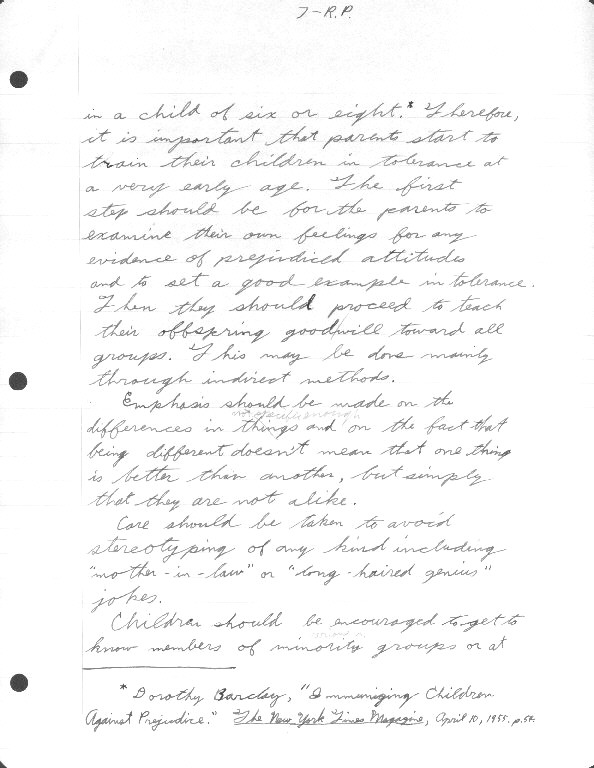 7-R.P.
in a child of six or eight.* Therefore,
it is important that parents start to
train their children in tolerance at
a very early age. The first
step should be for the parents to
examine their own feelings for any
evidence of prejudiced attitudes
and to set a good example in tolerance.
Then they should proceed to teach
their offspring good/will toward all
groups. This may be done mainly
through indirect methods.
Emphasis should be made on the
not specific enough
differences in things and on the fact that
being different doesn't mean that one thing
is better than another, but simply
that they are not alike.
Care should be taken to avoid
stereotyping of any kind including
"mother-in-law" or "long-haired genius"
jokes.
Children should be encouraged to get to
know members of minority groups or at
* Dorothy Barclay, "Immunizing Children
Against Prejudice." The New York Times Magazine, April 10, 1955. p.54.